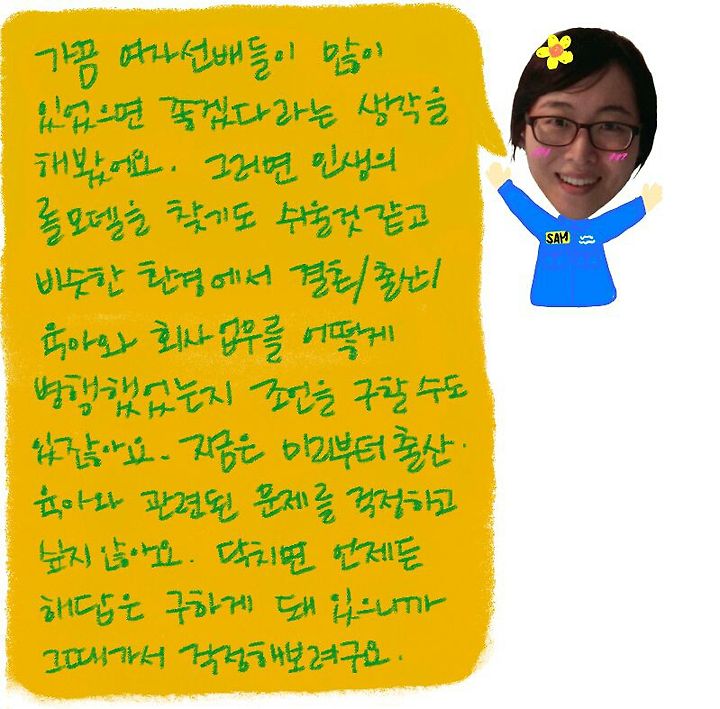 가끔 여자선배들이 많이
있었으면 좋겠다라는 생각을
해봤어요. 그러면 인생의
롤모델을 찾기도 쉬울것 같고
비슷한 환경에서 결혼/출산/
육아와 회사업무를 어떻게
병행했었는지 조언을 구할 수도
있잖아요. 지금은 미리부터 출산·
육아와 관련된 문제를 걱정하고
싶지 않아요. 닥치면 언제든
해답은 구하게 돼 있으니까
그때가서 걱정해보려구요.
SAM